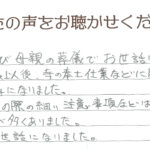 の声をお聴かせくだ
び母親の葬儀でお世話に
以後、寺の本土仕業などに
になりました。
の際の細い注意事項など
が多くありました。
世話になりました。